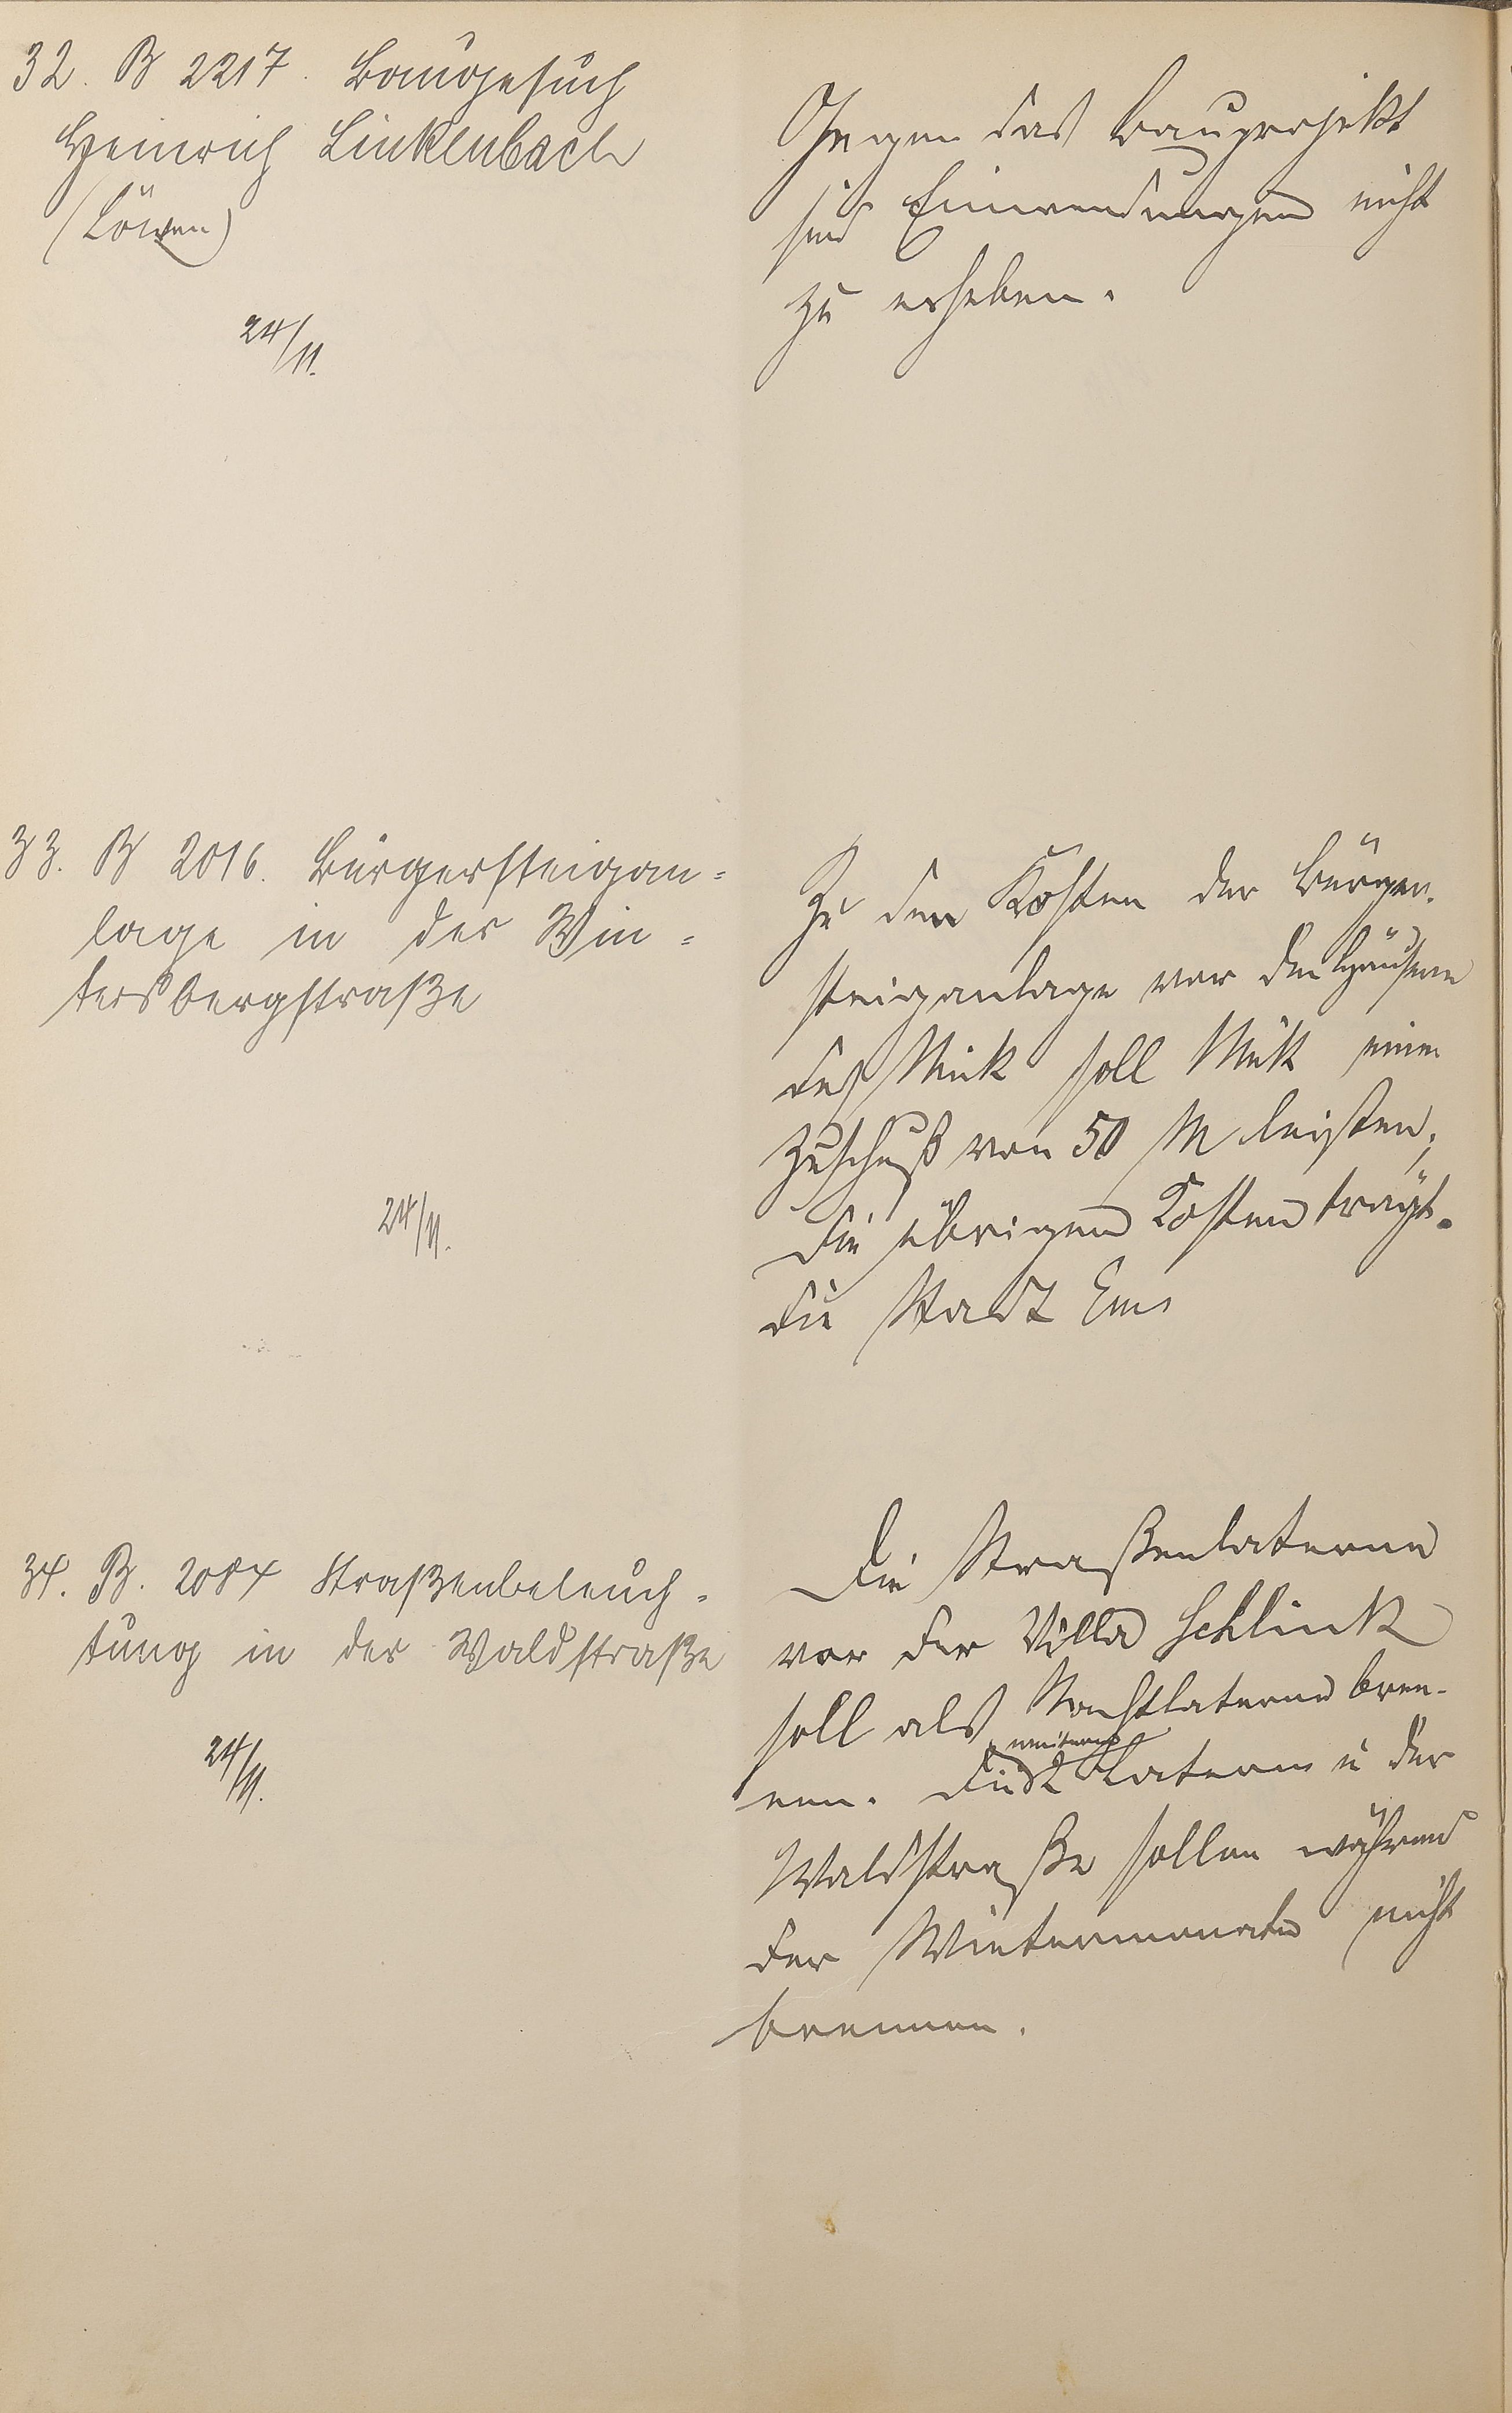 32. B 2217. Baugesuch
Heinrich Linkenbach
(Löwen)
24/11.
Gegen das Bauprojekt
sind Einwendungen nicht
zu erheben.
33. B 2016. Bürgersteigan=
lage in der Win=
tersbergstraße
24/11.
Zu den Kosten der Bürger-
steiganlage vor den Häusern
des soll einen
Zuschuß von 50 M leisten;
die übrigen Kosten trägt
die Stadt Ems
34. B. 2084 Straßenbeleuch=
tung in der Waldstraße
24/11.
Die Straßenlaterne
vor der Villa Schlink
soll als Nachtlaterne bren-
nen. Die 2 weiteren Laternen in der
Waldstraße sollen während
der Wintermonate nicht
brennen.